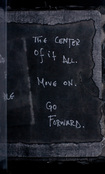 THE CENTER
Of it ALL.
MOVE ON.
GO
FORWARD.